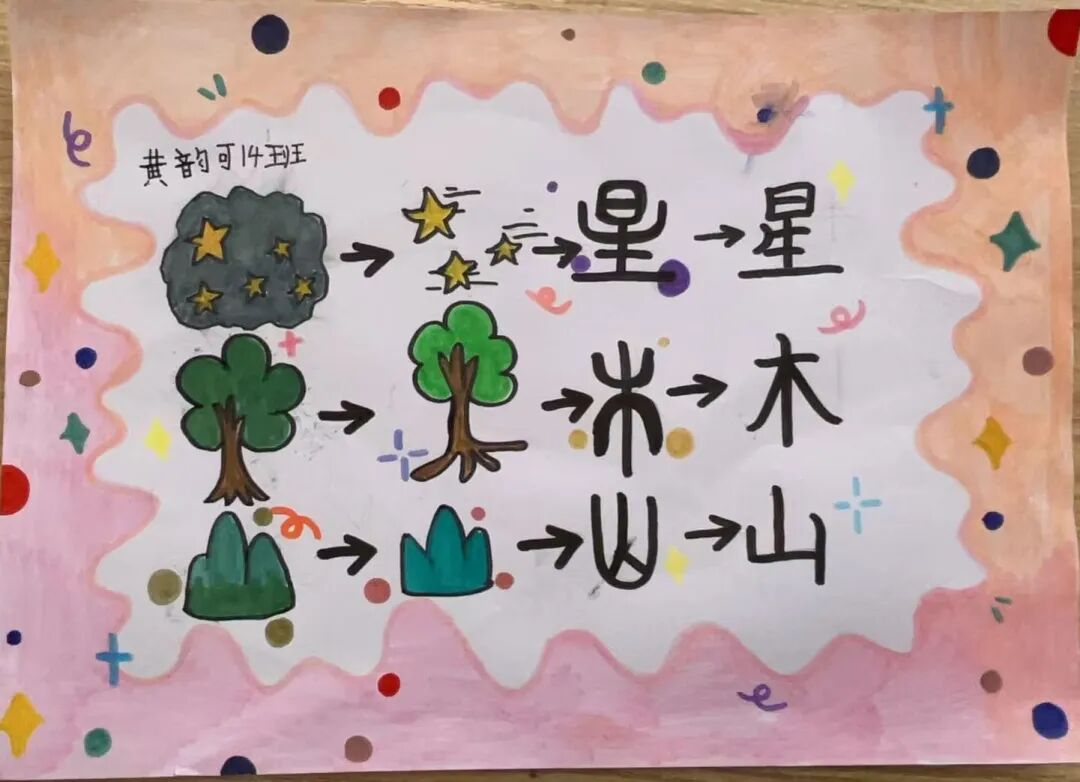 黄韵可14班
星 星
木 木
山 山